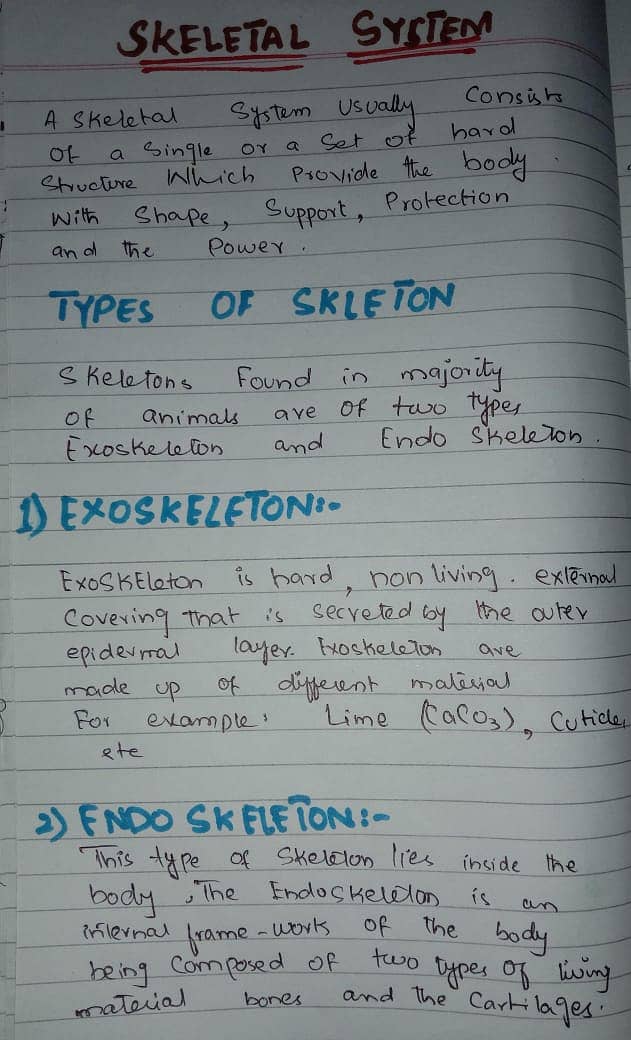 SKELETAL SYSTEM
A Skeletal System Usually Consists
Of a Single or a Set of hard
Structure Which Provide the body.
With Shape, Support, Protection
and the Power.
TYPES OF SKLETON
Skeletons Found in majority
of animals are of two types
Exoskeleton and Endo Skeleton.
1) EXOSKELETON:-
ExoSKEleton is hard, non living. external
Covering that is secreted by the outer
epidermal layer. Exoskeleton are
made up of different material
For example: Lime (CaCO3), Cuticle,
ete
2) ENDO SKELETON:-
This type of Skeleton lies inside the
body, The Endoskeleton is an
internal frame-work of the body
being Composed of two types of living
material bones and the Cartilages.